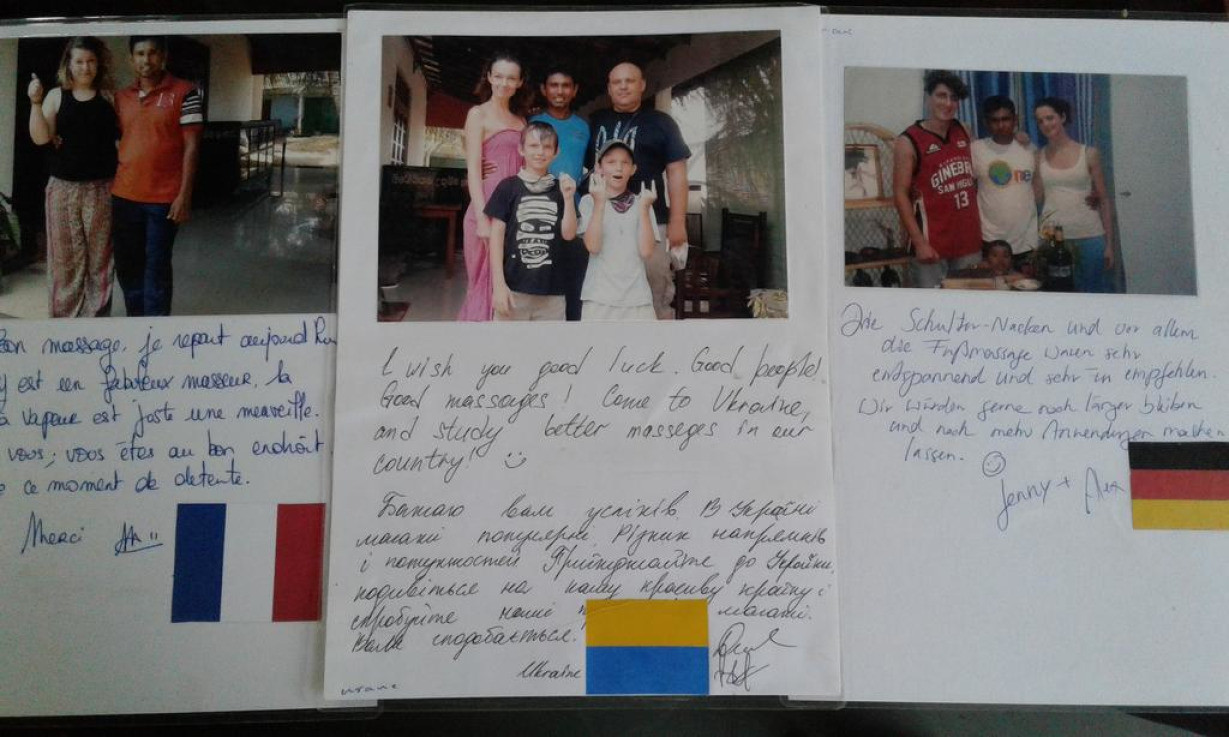 Bon massage, je repart aujourd'hui
y est un fabuleux masseur, la
à vapeur est juste une merveille.
vous, vous êtes au bon endroit
ce moment de detente.
Merci
I wish you good luck. Good people!
Good massages! Come to Ukraine,
and study better masseges in our
country!
Бажаю вам успіхів. В Україні
масажі популярні. Різних напрямків
і потужностей Приїжджайте до України
подивіться на нашу красиву країну і
спробуйте наші масажі.
Вам сподобається.
Ukraine
GINEBRA
SAN MIGUEL
13
One
Die Schulter-Nacken und vor allem
die Fußmassage waren sehr
entspannend und sehr zu empfehlen.
Wir würden gerne noch länger bleiben
und noch mehr Anwendungen machen
lassen.
Jenny + Alex